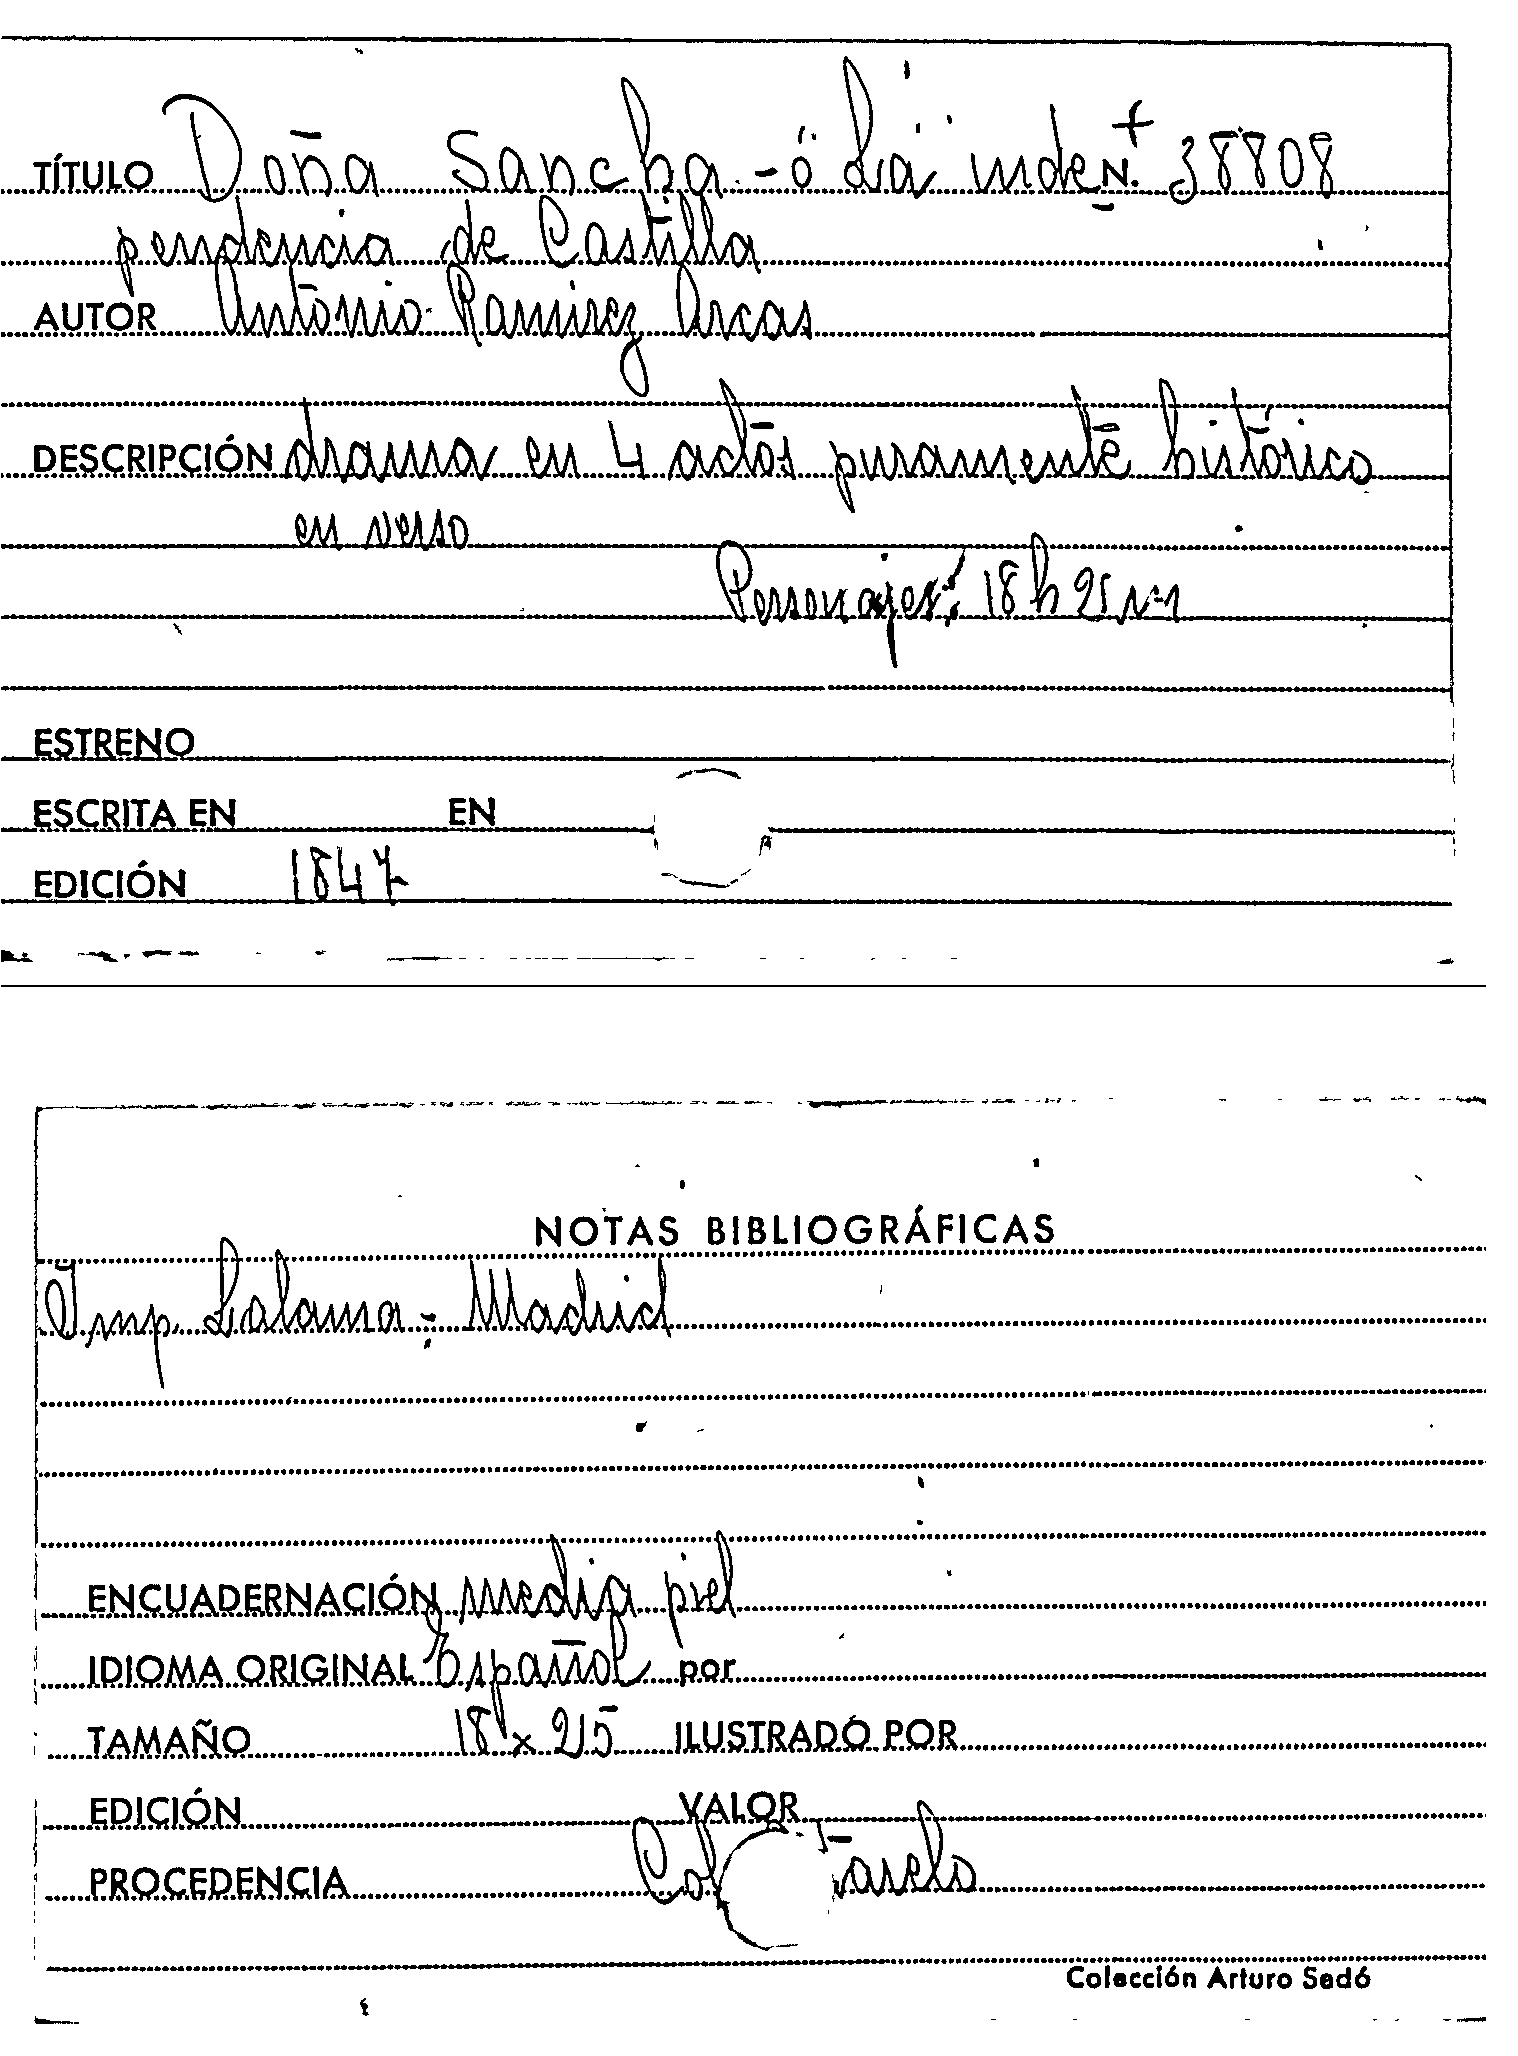 TÍTULO Doña Sancha - ó La inde N. 38808
pendencia de Castilla
AUTOR Antonio Ramirez Arcas
DESCRIPCIÓN drama en 4 actos puramente histórico
en verso
Personajes: 18 h 2 m
ESTRENO
ESCRITA EN EN
EDICIÓN 1847
NOTAS BIBLIOGRÁFICAS
Imp Lalama - Madrid
ENCUADERNACIÓN media piel
IDIOMA ORIGINAL Español por
TAMAÑO 18 x 215 ILUSTRADO POR
EDICIÓN VALOR
PROCEDENCIA Col
Colección Arturo Sedó